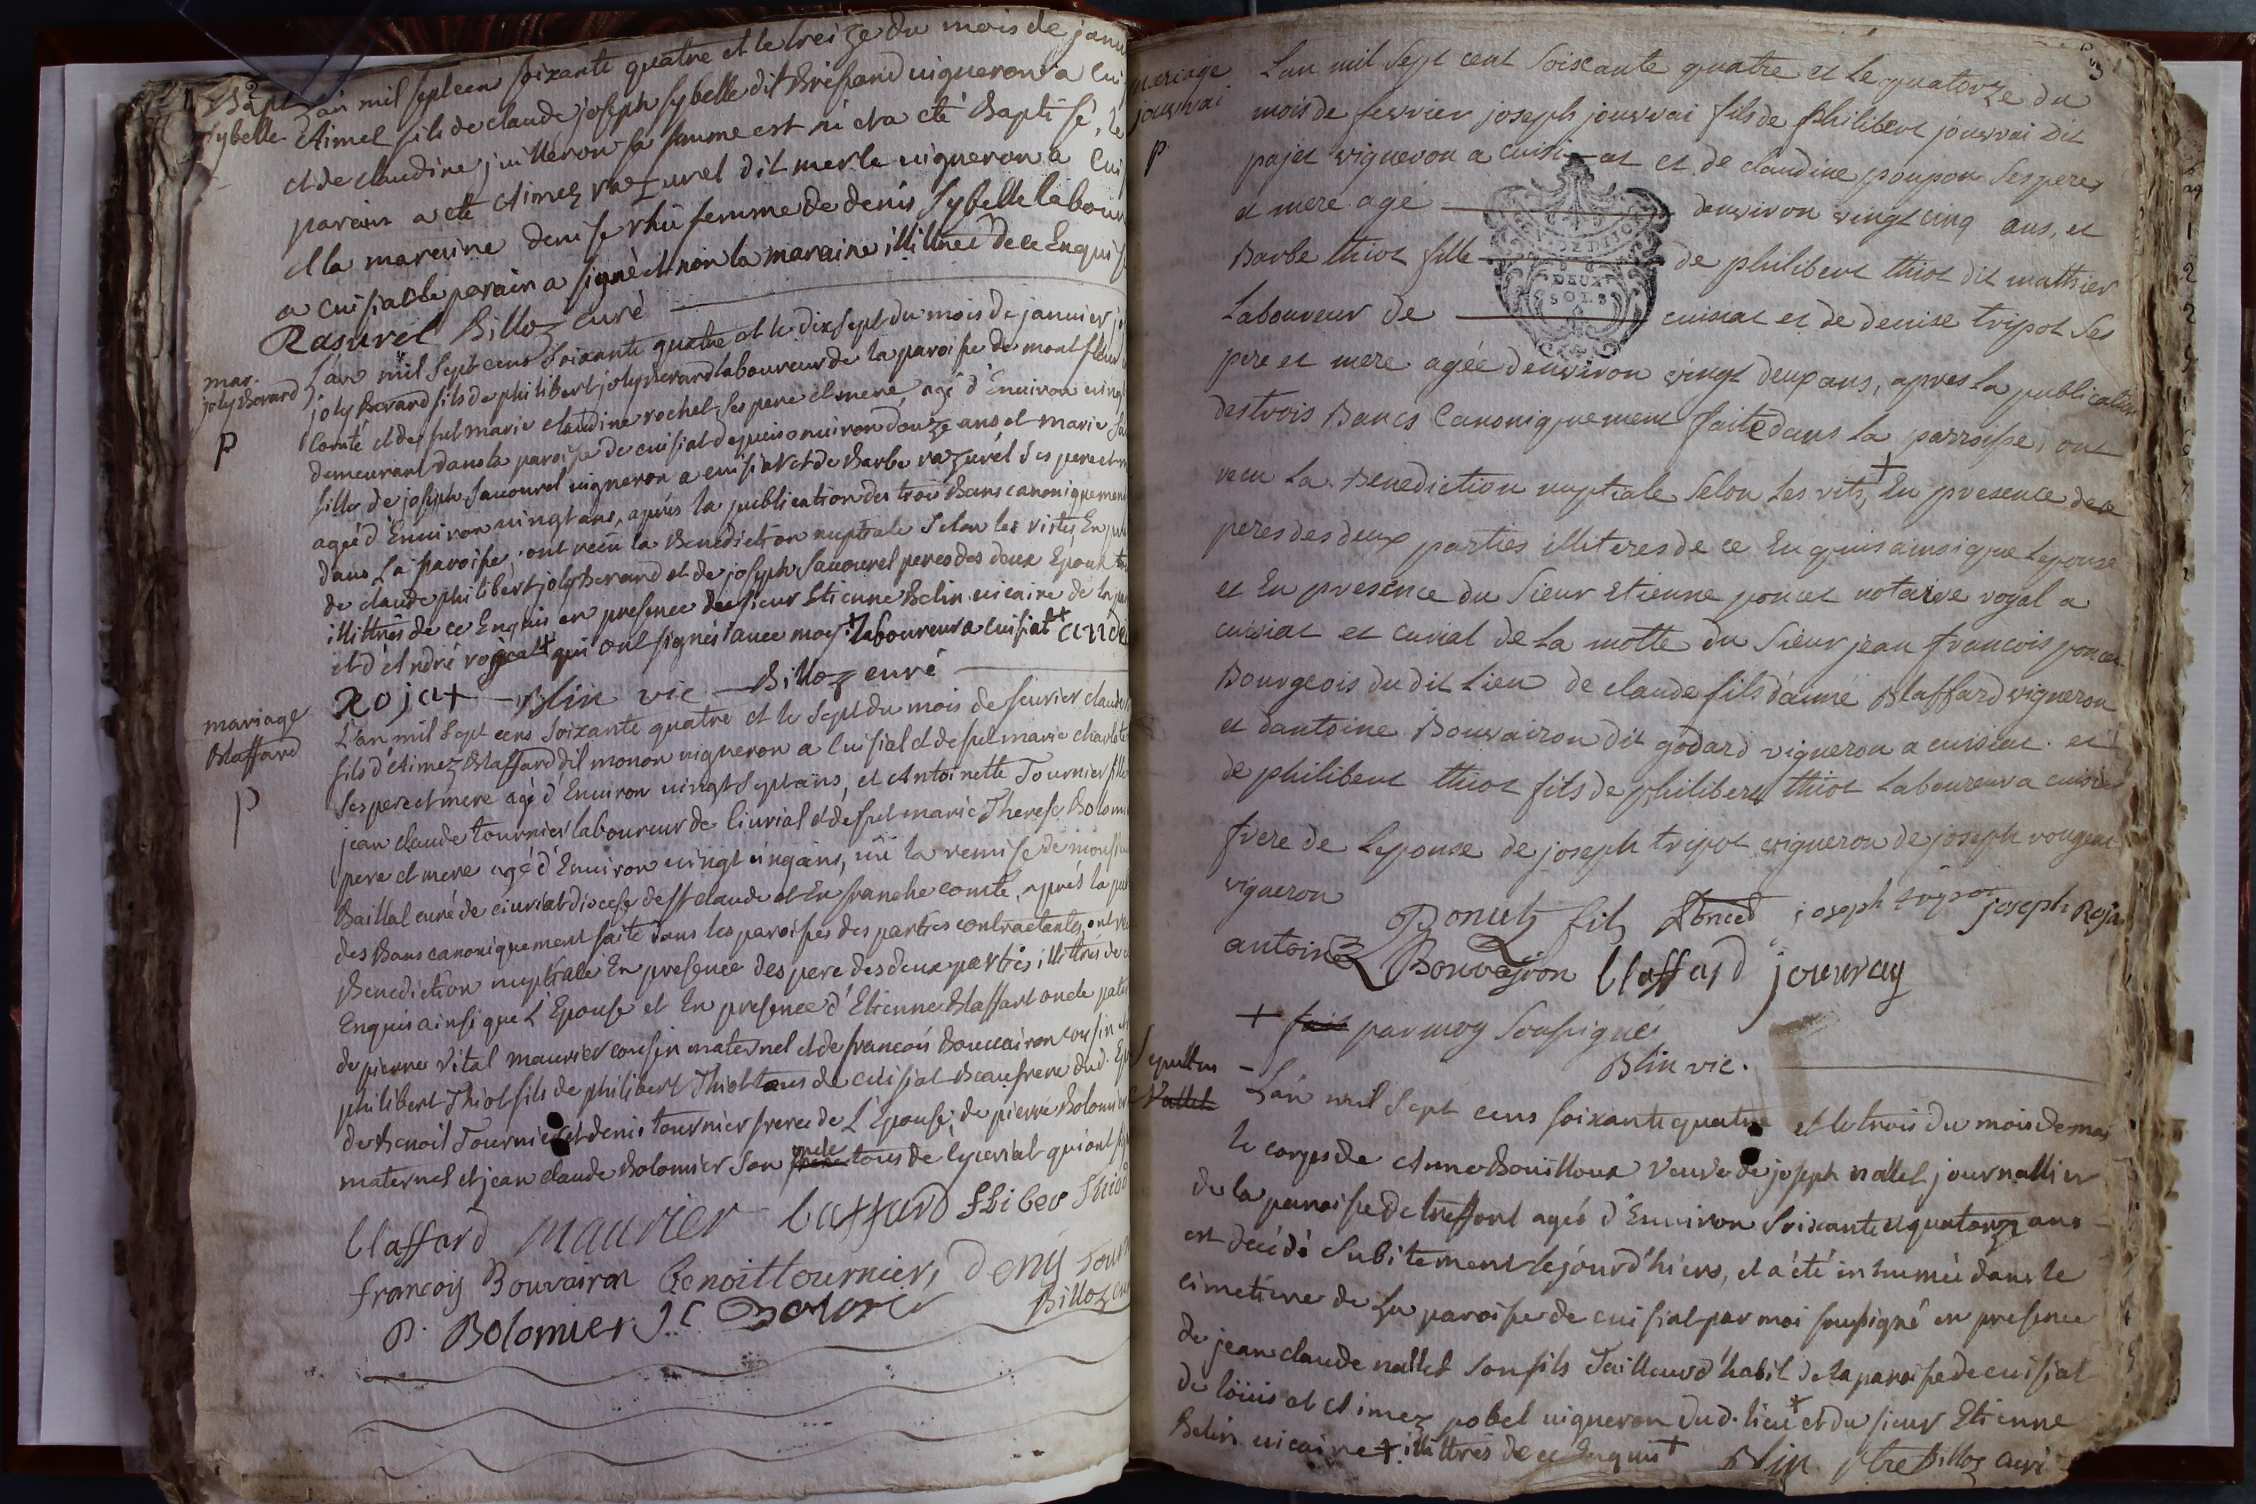 2
Bapt.
Sybelle
L'an mil sept cens soixante quatre et le treize du mois de janv
Aimel fils de claude joseph sybelle dit Brisand vigneron a Cui
et de claudine juilleron sa femme est né et a été Baptisé, le
parain a été Aimez razurel dit merle vigneron a Cui
et la maraine denise rhü femme de denis Sybelle labour
a cuisiat le parain a signé et non la maraine illittrée de ce Enquise
Rasurel Billoz curé
mar.
joly Berard
P
L'an mil sept cens soixante quatre et le dix sept du mois de janvier
joly Berard fils de philibert joly Berard laboureur de la paroisse de montfleur
Comté et de fut marie claudine rochet, ses pere et mere, agé d'Environ vingt
demeurant dans la paroisse de cuisiat depuis environ douze ans et marie
fille de joseph Savourel vigneron a cuisiat et de Barbe razurel ses pere et m
agée d'Environ vingt ans, aprés la publication des trois Bans canoniquement
dans la paroisse, ont reçu la Benediction nuptiale selon les rites, En
de claude philibert joly Berard et de joseph Savourel peres des deux Epoux
illittrés de ce Enquis en presence du sieur Etienne Belin vicaire de la
et d'André rojeat + qui ont signés avec moy. + laboureur a cuisiat + andé
Rojat Blin vic Billoz curé
mariage
Blaffard
P
L'an mil sept cens soixante quatre et le sept du mois de fevrier claude
fils d'Aimez Blaffard dit monon vigneron a Cuisiat et de fut marie charlote
ses pere et mere agé d'Environ vingt sept ans, et Antoinette Tournier fille
jean claude tournier laboureur de Civriat et de fut marie Therese Bolomi
pere et mere agé d'Environ vingt cinq ans, vü la remise de monsieur
Baillat curé de civriat diocese de st claude et En franche comté, aprés la
des Bans canoniquement faite dans les paroisses des parties contractantes, ont
Benediction nuptiale En presence des pere des deux parties illittrés de
Enquis ainsi que L'Epouse et En presence d'Etienne Blaffart oncle
de pierre vital maurier cousin maternel et de francois Bouvairon cousin
philibert Thiot fils de philibert Thiot tous de cuisiat Beaufrere dud.
de Benoit Tournier et denis tournier freres de L'Epouse, de pierre Bolomier
maternel et jean claude Bolomier son oncle tous de Civriat qui ont
blaffard maurier blaffard
françois Bouvairon benoit tournier, denis tourn
P. Bolomier J C Billoz cu
3
mariage
jouvrai
P
L'an mil sept cent soixante quatre et le quatorze du
mois de fevrier joseph jouvrai fils de philibert jouvrai dit
pajet vigneron a cuisiat et de claudine poupon ses pere
et mere agé denviron vingt cinq ans, et
Barbe thiot fille de philibert thiot dit mathier
DEUX
SOLS
Laboureur de cuisiat et de denise tripot ses
pere et mere agée denviron vingt deux ans, apres la publication
des trois Bancs Canoniquement faite dans la parroisse, ont
recu la Benediction nuptiale selon les rits, + En presence des
peres des deux parties illiteres de ce Enquis ainsi que Lepouse
et En presence du sieur Etienne poncet notaire royal a
cuisiat et curial de La motte du sieur jean francois poncet
Bourgeois du dit Lieu de claude fils d'aimé Blaffard vigneron
et dantoine Bouvairon dit godard vigneron a cuisiat et
de philibert thiot fils de philibert thiot Laboureur a cuisiat
frere de Lepouse de joseph tripot vigneron de joseph rougeat
vigneron
Poncet fils Poncet joseph tripot joseph Roja
antoine Bouvairon blaffard jouvray
+ fait par moy soussigné
Blin vic.
Sepulture
Nallet
L'an mil sept cens soixante quatre et le trois du mois de mai
le corps de Anne Bouilloux veuve de joseph nallet journallier
de la paroisse de treffort agée d'Environ soixante et quatorze ans
est décédé subitement le jour d'hiers, et a été inhumée dans le
cimetiere de La paroisse de cuisiat par moi soussigné en presence
de jean claude nallet son fils Tailleur d'habit de la paroisse de cuisiat
de loüis et Aimez pobel vigneron dud. lieu + et du sieur Etienne
Belin vicaire + illittrés de ce Enquis + Blin ptre Billoz curé